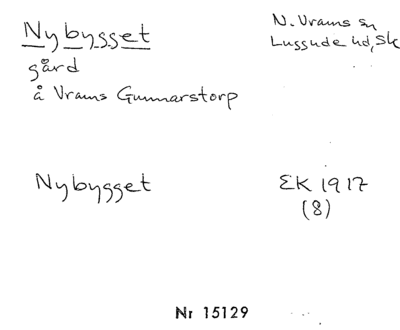 Nybygget
N. Vrams sn
Luggude hd, Sk
gård
å Vrams Gunnarstorp
Nybygget
EK 1917
(8)
Nr 15129